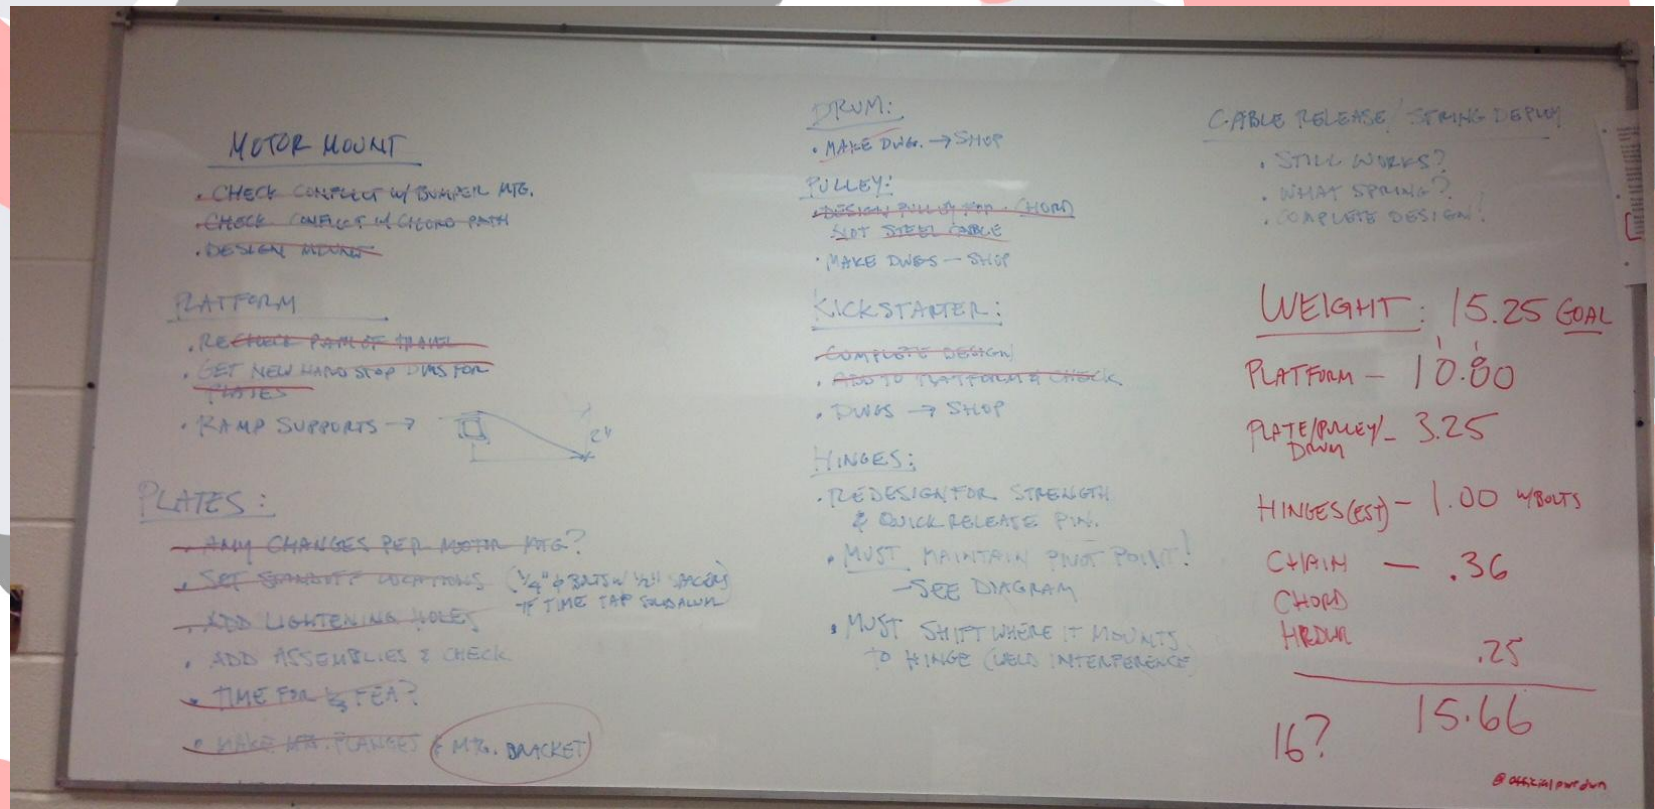 MOTOR MOUNT
• CHECK CONFLICT W/ BUMPER MTG.
• CHECK CONFLICT W/ CHORD PATH
• DESIGN MOUNT
PLATFORM
• RECHECK PATH OF TRAVEL
• GET NEW HARD STOP DIMS FOR
PLATES
• RAMP SUPPORTS →
2"
PLATES:
• ANY CHANGES PER MOTOR MTG?
• SET STANDOFF LOCATIONS (1/4" ϕ BOLTS W/ 1/2" SPACERS)
IF TIME TAP
• ADD LIGHTENING HOLES
• ADD ASSEMBLIES & CHECK
• TIME FOR FEA?
• MAKE FLANGES & MTG. BRACKET
DRUM:
• MAKE DWG. → SHOP
PULLEY:
• DESIGN PULLEY FOR CHORD
SLOT STEEL CABLE
• MAKE DWGS — SHOP
KICKSTARTER:
• COMPLETE DESIGN
• ADD TO PLATFORM & CHECK
• DWGS → SHOP
HINGES:
• REDESIGN FOR STRENGTH
& QUICK RELEASE PIN.
• MUST MAINTAIN PIVOT POINT!
— SEE DIAGRAM
• MUST SHIFT WHERE IT MOUNTS
TO HINGE (WELD INTERFERENCE
CABLE RELEASE/ STRING DEPLOY
• STILL WORKS?
• WHAT SPRING?
• COMPLETE DESIGN!
WEIGHT: 15.25 GOAL
PLATFORM — 10.80
PLATE/PULLEY/ — 3.25
DRUM
HINGES (EST) — 1.00 W/BOLTS
CHAIN — .36
CHORD
HRDWR .25
15.66
16?